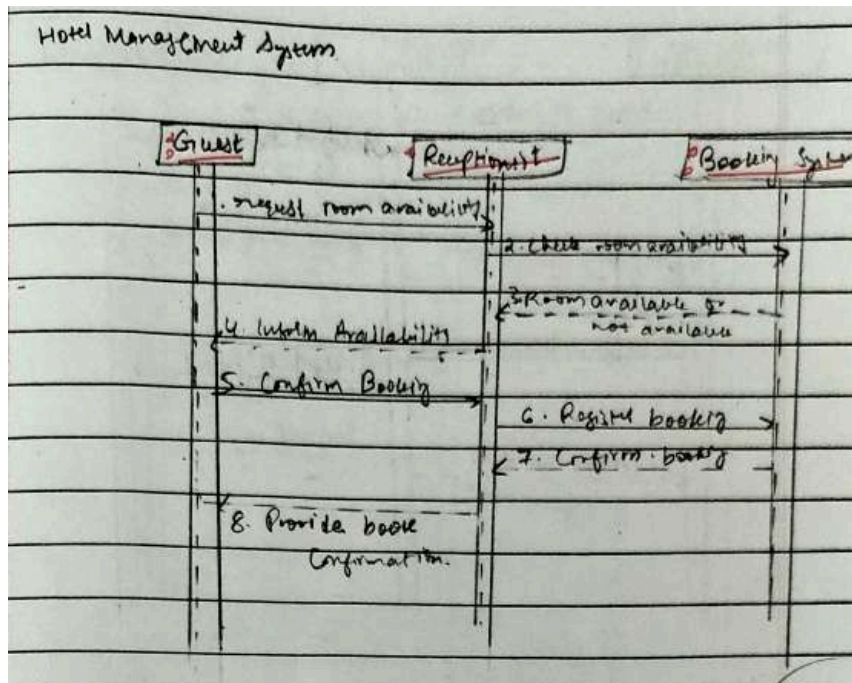 Hotel Management System
: Guest
Receptionist
: Booking System
. request room availability
2. Check room availability
3. Room available or
not available
4. Inform Availability
5. Confirm Booking
6. Register booking
7. Confirm booking
8. Provide book
Confirmation.